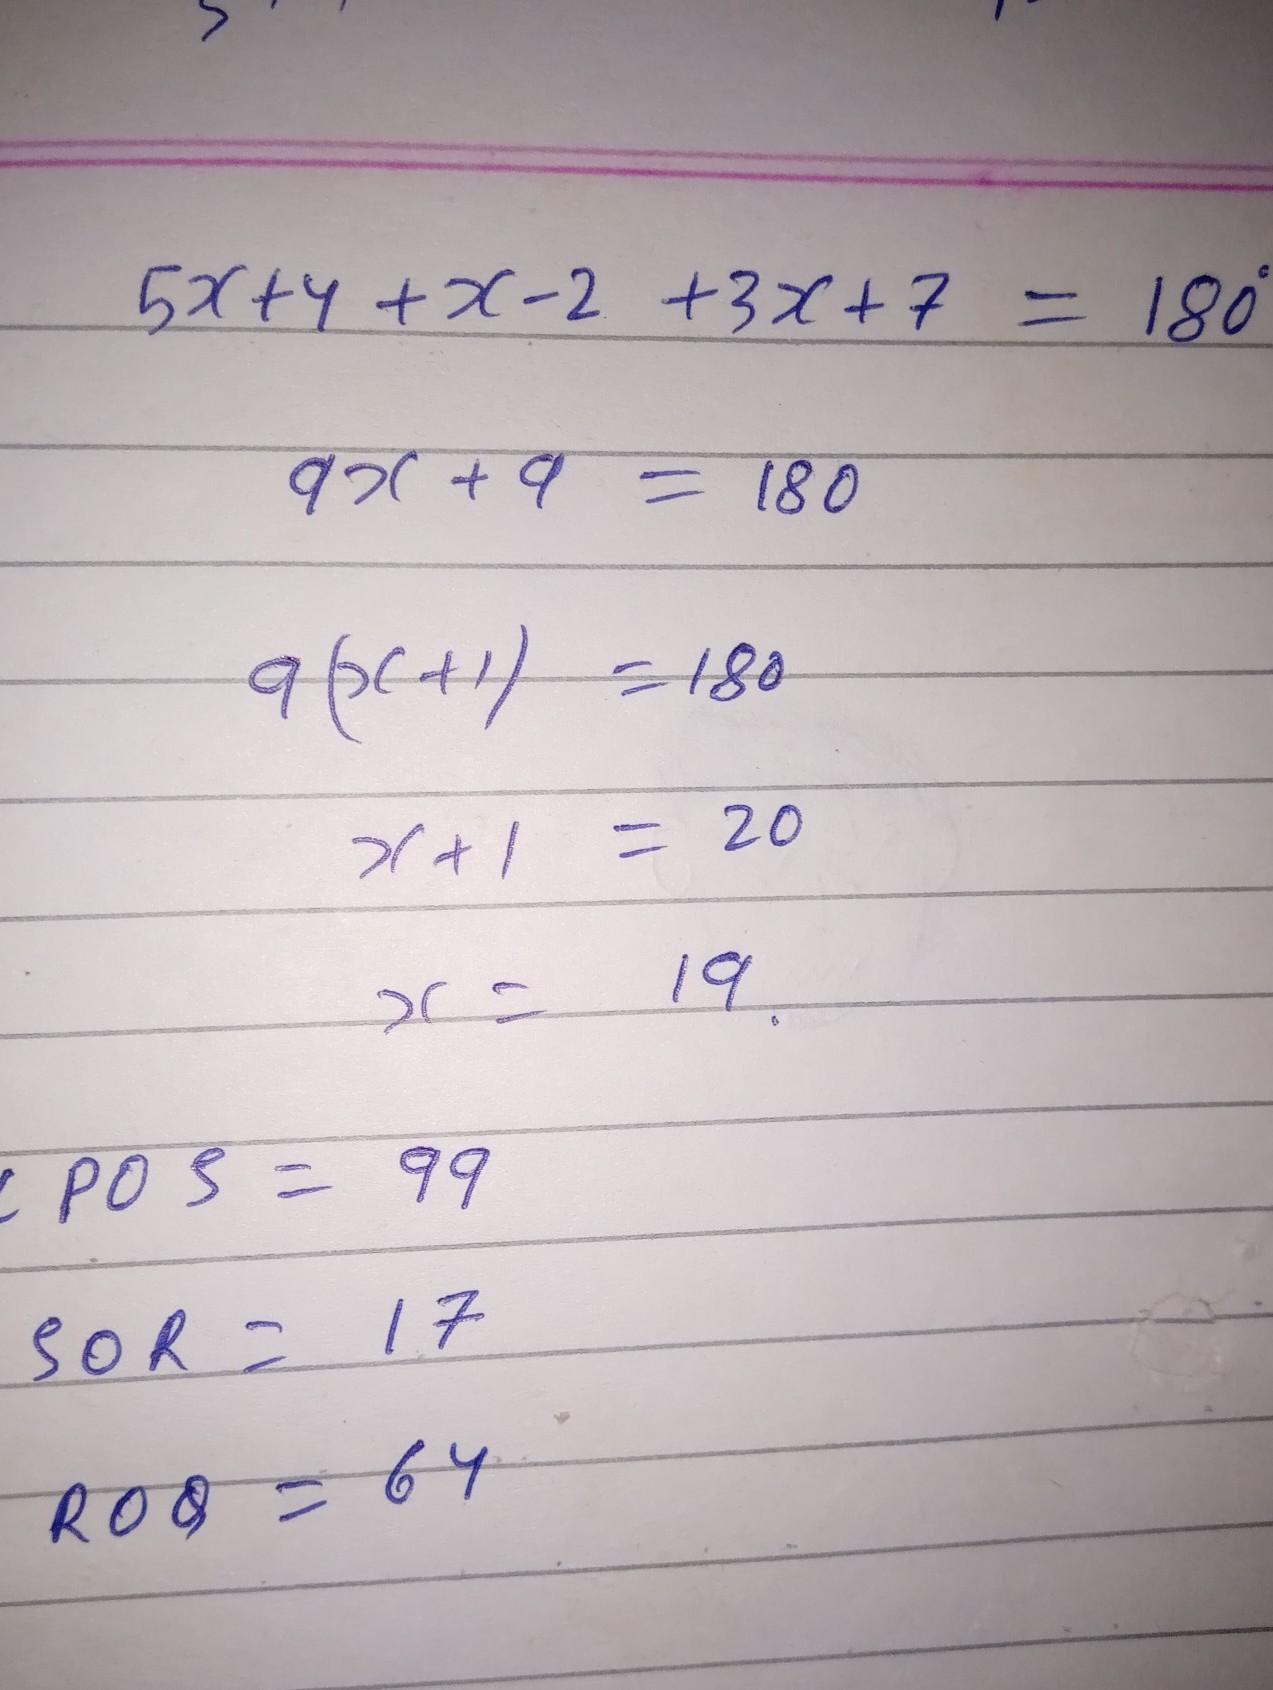 5x+4+x-2+3x+7 = 180°
9x+9 = 180
9(x+1) = 180
x+1 = 20
x = 19.
POS = 99
SOR = 17
ROQ = 64